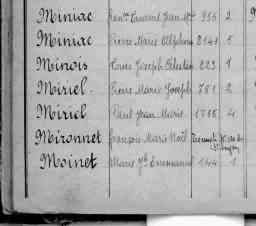 Miniac Laurent Jean Mie 956 2
Miniac Pierre Marie Alphonse 2141 5
Minois Pierre Joseph Célestin 223 1
Miriel Pierre Marie Joseph 751 2
Miriel Paul Jean Marie 1765 4
Mironnet François Marie Noël
Moinet Marie Jh Emmanuel 144 1